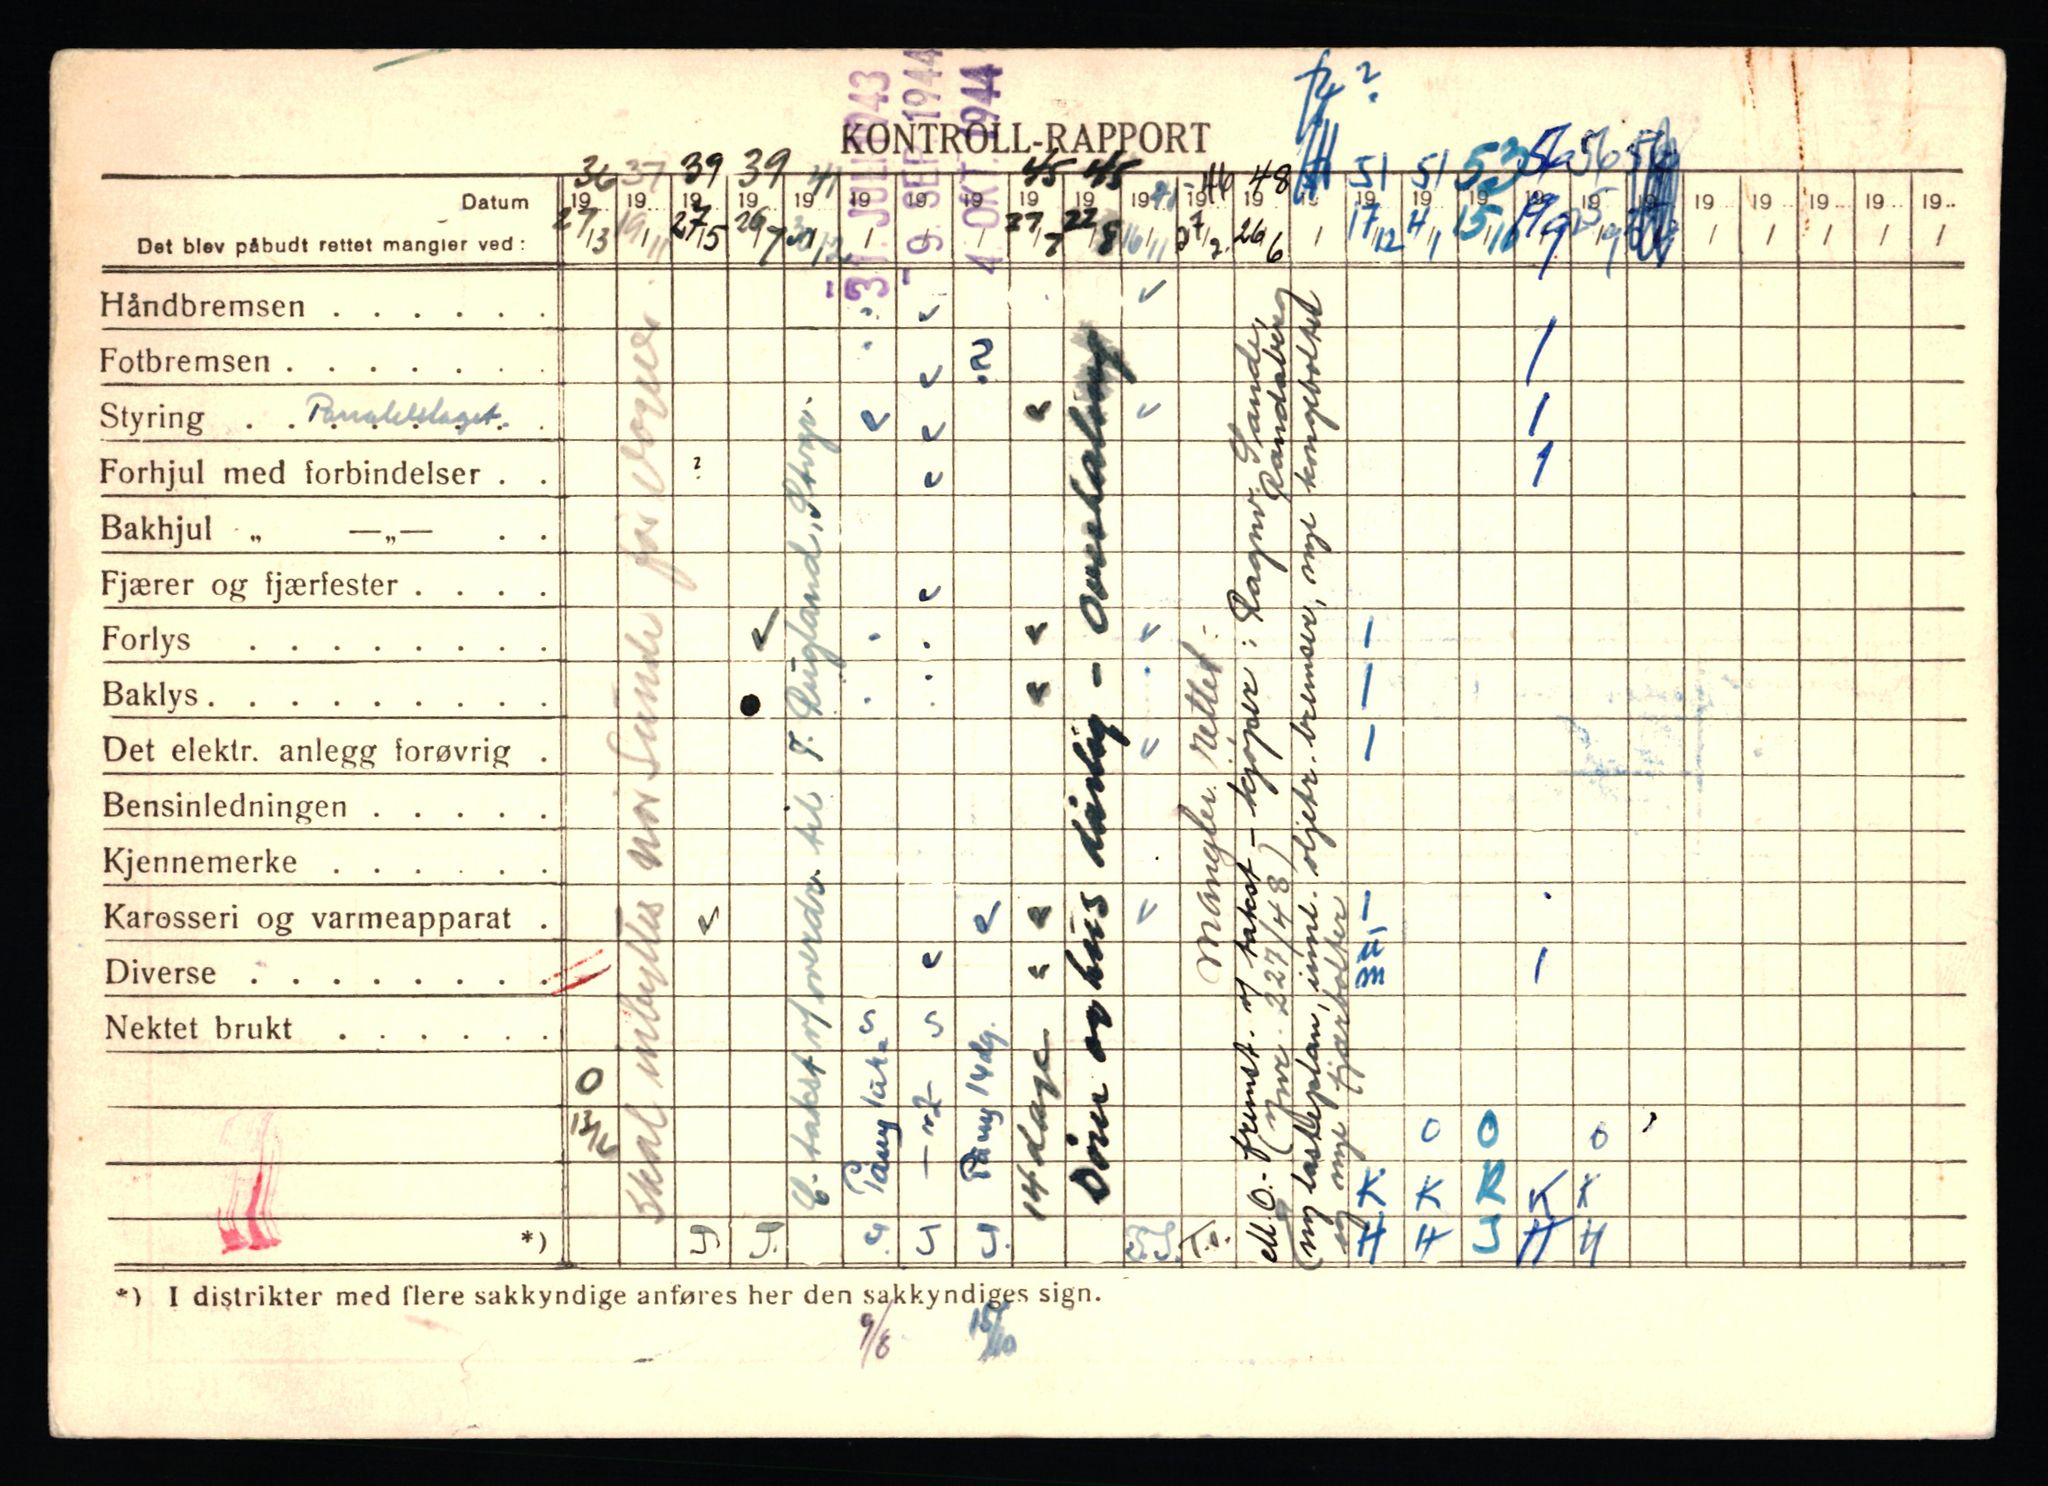 KONTROLL-RAPPORT
Datum
36 37 39 39 41 31. JULI 1943 9. SEP. 1944 4. OKT. 1944 45 45 46 48 51 51 53 56 56
19 19 19 19 19 19 19 19 19 19 19 19 19 19 19 19 19 19 19 19 19 19 19 19 19
Det blev påbudt rettet mangler ved:
27/3 19/11 27/5 26/7 27/7 22/8 16/11 27/2. 26/6 17/12 4/1 15/10 19/9
Håndbremsen
Fotbremsen
Styring Parralelstaget.
Forhjul med forbindelser
Bakhjul „ —„—
Fjærer og fjærfester
Forlys
Baklys
Det elektr. anlegg forøvrig
Bensinledningen
Kjennemerke
Karosseri og varmeapparat
Diverse
Nektet brukt
*)
0
Skal innbyttes hos Sunde for
T. T.
E. takst v/ overdr. til T. Rugland,
Pang
Pang 14 dg.
14 dage
Dörer og hus dårlig - Overhaling
Mangler rettet.
T.S. T.S.
M.O.- fremst. v/ takst - kjøper: Ragnv. Sande,
Randaberg
(Jnr. 227/48)
(ny lasteplan, innl. oljetr. bremser, nye kongebolter
og nye fjærbolter
O O O
K K R K K
H H J H H
*) I distrikter med flere sakkyndige anføres her den sakkyndiges sign.
9/8 15/10